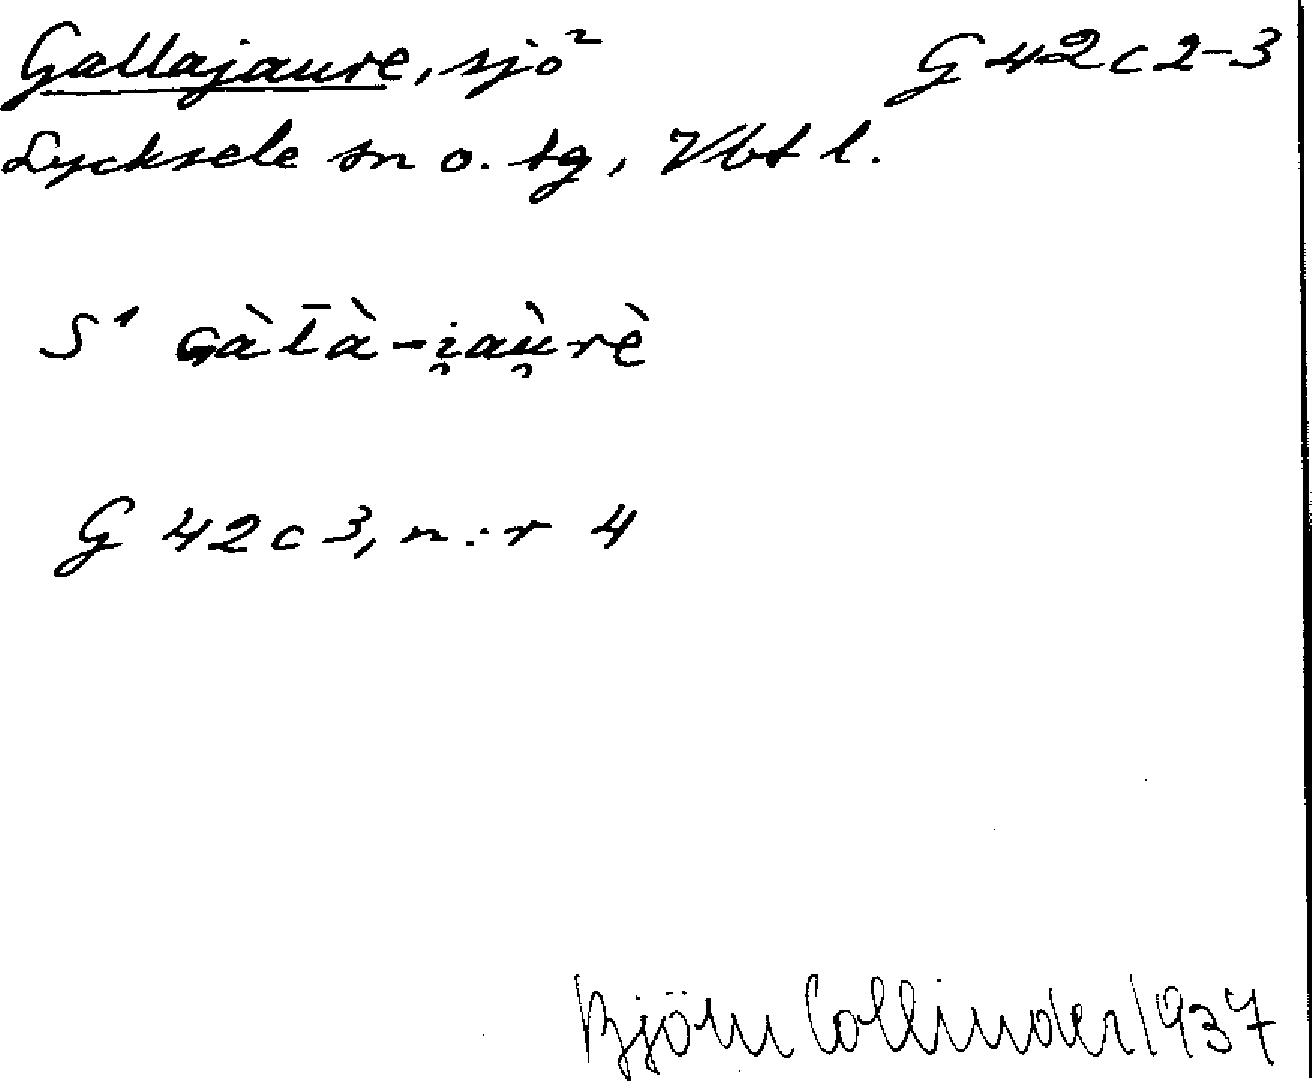 Gallajaure, sjö G 42 c 2-3
Lycksele sn o. tg, Vbt l.
S¹ ɢàl̅à-i̯aù̯rè
G 42 c 3, n:r 4
Björn Collinder 1937